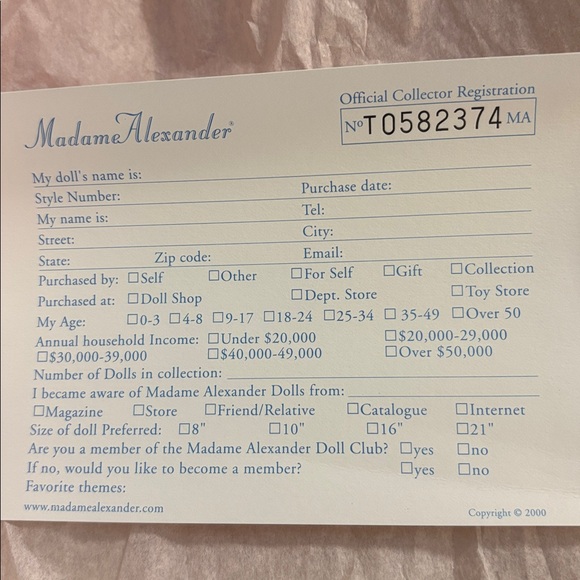 Official Collector Registration
Madame Alexander®
Nº T0582374 MA
My doll's name is:
Style Number: Purchase date:
My name is: Tel:
Street: City:
State: Zip code: Email:
Purchased by: ☐Self ☐Other ☐For Self ☐Gift ☐Collection
Purchased at: ☐Doll Shop ☐Dept. Store ☐Toy Store
My Age: ☐0-3 ☐4-8 ☐9-17 ☐18-24 ☐25-34 ☐35-49 ☐Over 50
Annual household Income: ☐Under $20,000 ☐$20,000-29,000
☐$30,000-39,000 ☐$40,000-49,000 ☐Over $50,000
Number of Dolls in collection:
I became aware of Madame Alexander Dolls from:
☐Magazine ☐Store ☐Friend/Relative ☐Catalogue ☐Internet
Size of doll Preferred: ☐8" ☐10" ☐16" ☐21"
Are you a member of the Madame Alexander Doll Club? ☐yes ☐no
If no, would you like to become a member? ☐yes ☐no
Favorite themes:
www.madamealexander.com Copyright © 2000